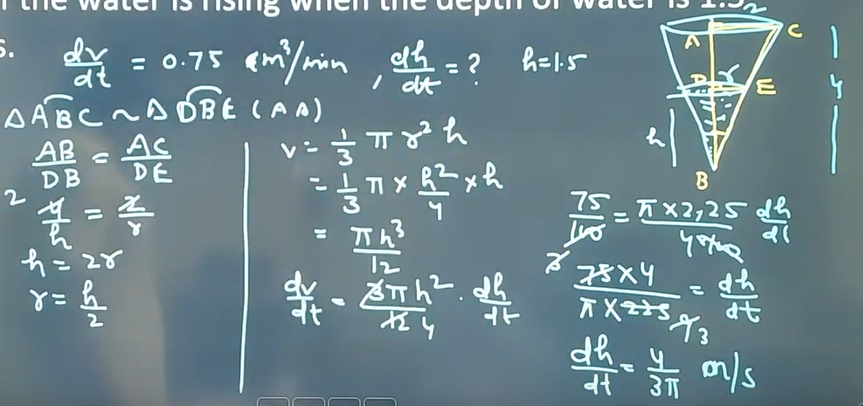 the water is rising when the depth of water is 1.5
5. dv/dt = 0.75 m³/min , dh/dt = ? h=1.5
△ABC ~ △DBE (AA)
AB/DB = AC/DE
2 4/h = 2/r
h = 2r
r = h/2
v = 1/3 π r² h
= 1/3 π × h²/4 × h
= πh³/12
dv/dt = 3πh²/12 4 · dh/dt
A 2 C
D r E
h
B
4
75/100 = π×2,25/400 dh/dt
3
75×4/π×225 = dh/dt
3
dh/dt = 4/3π m/s